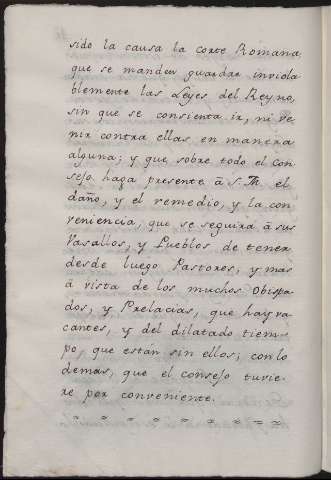 sido la causa la corte Romana,
que se manden guardar inviola
blemente las Leyes del Reyno,
sin que se consienta ir, ni ve
nir contra ellas en manera
alguna; y que sobre todo el Con
sejo haga presente â S. M. el
daño, y el remedio, y la con
veniencia, que se seguirá â sus
Vasallos, y Pueblos de tener
desde luego Pastores, y mas
â vista de los muchos Obispa
dos, y Prelacias, que hay va
cantes, y del dilatado tiem-
po, que están sin ellos; con lo
demas, que el consejo tuvie-
re por conveniente.